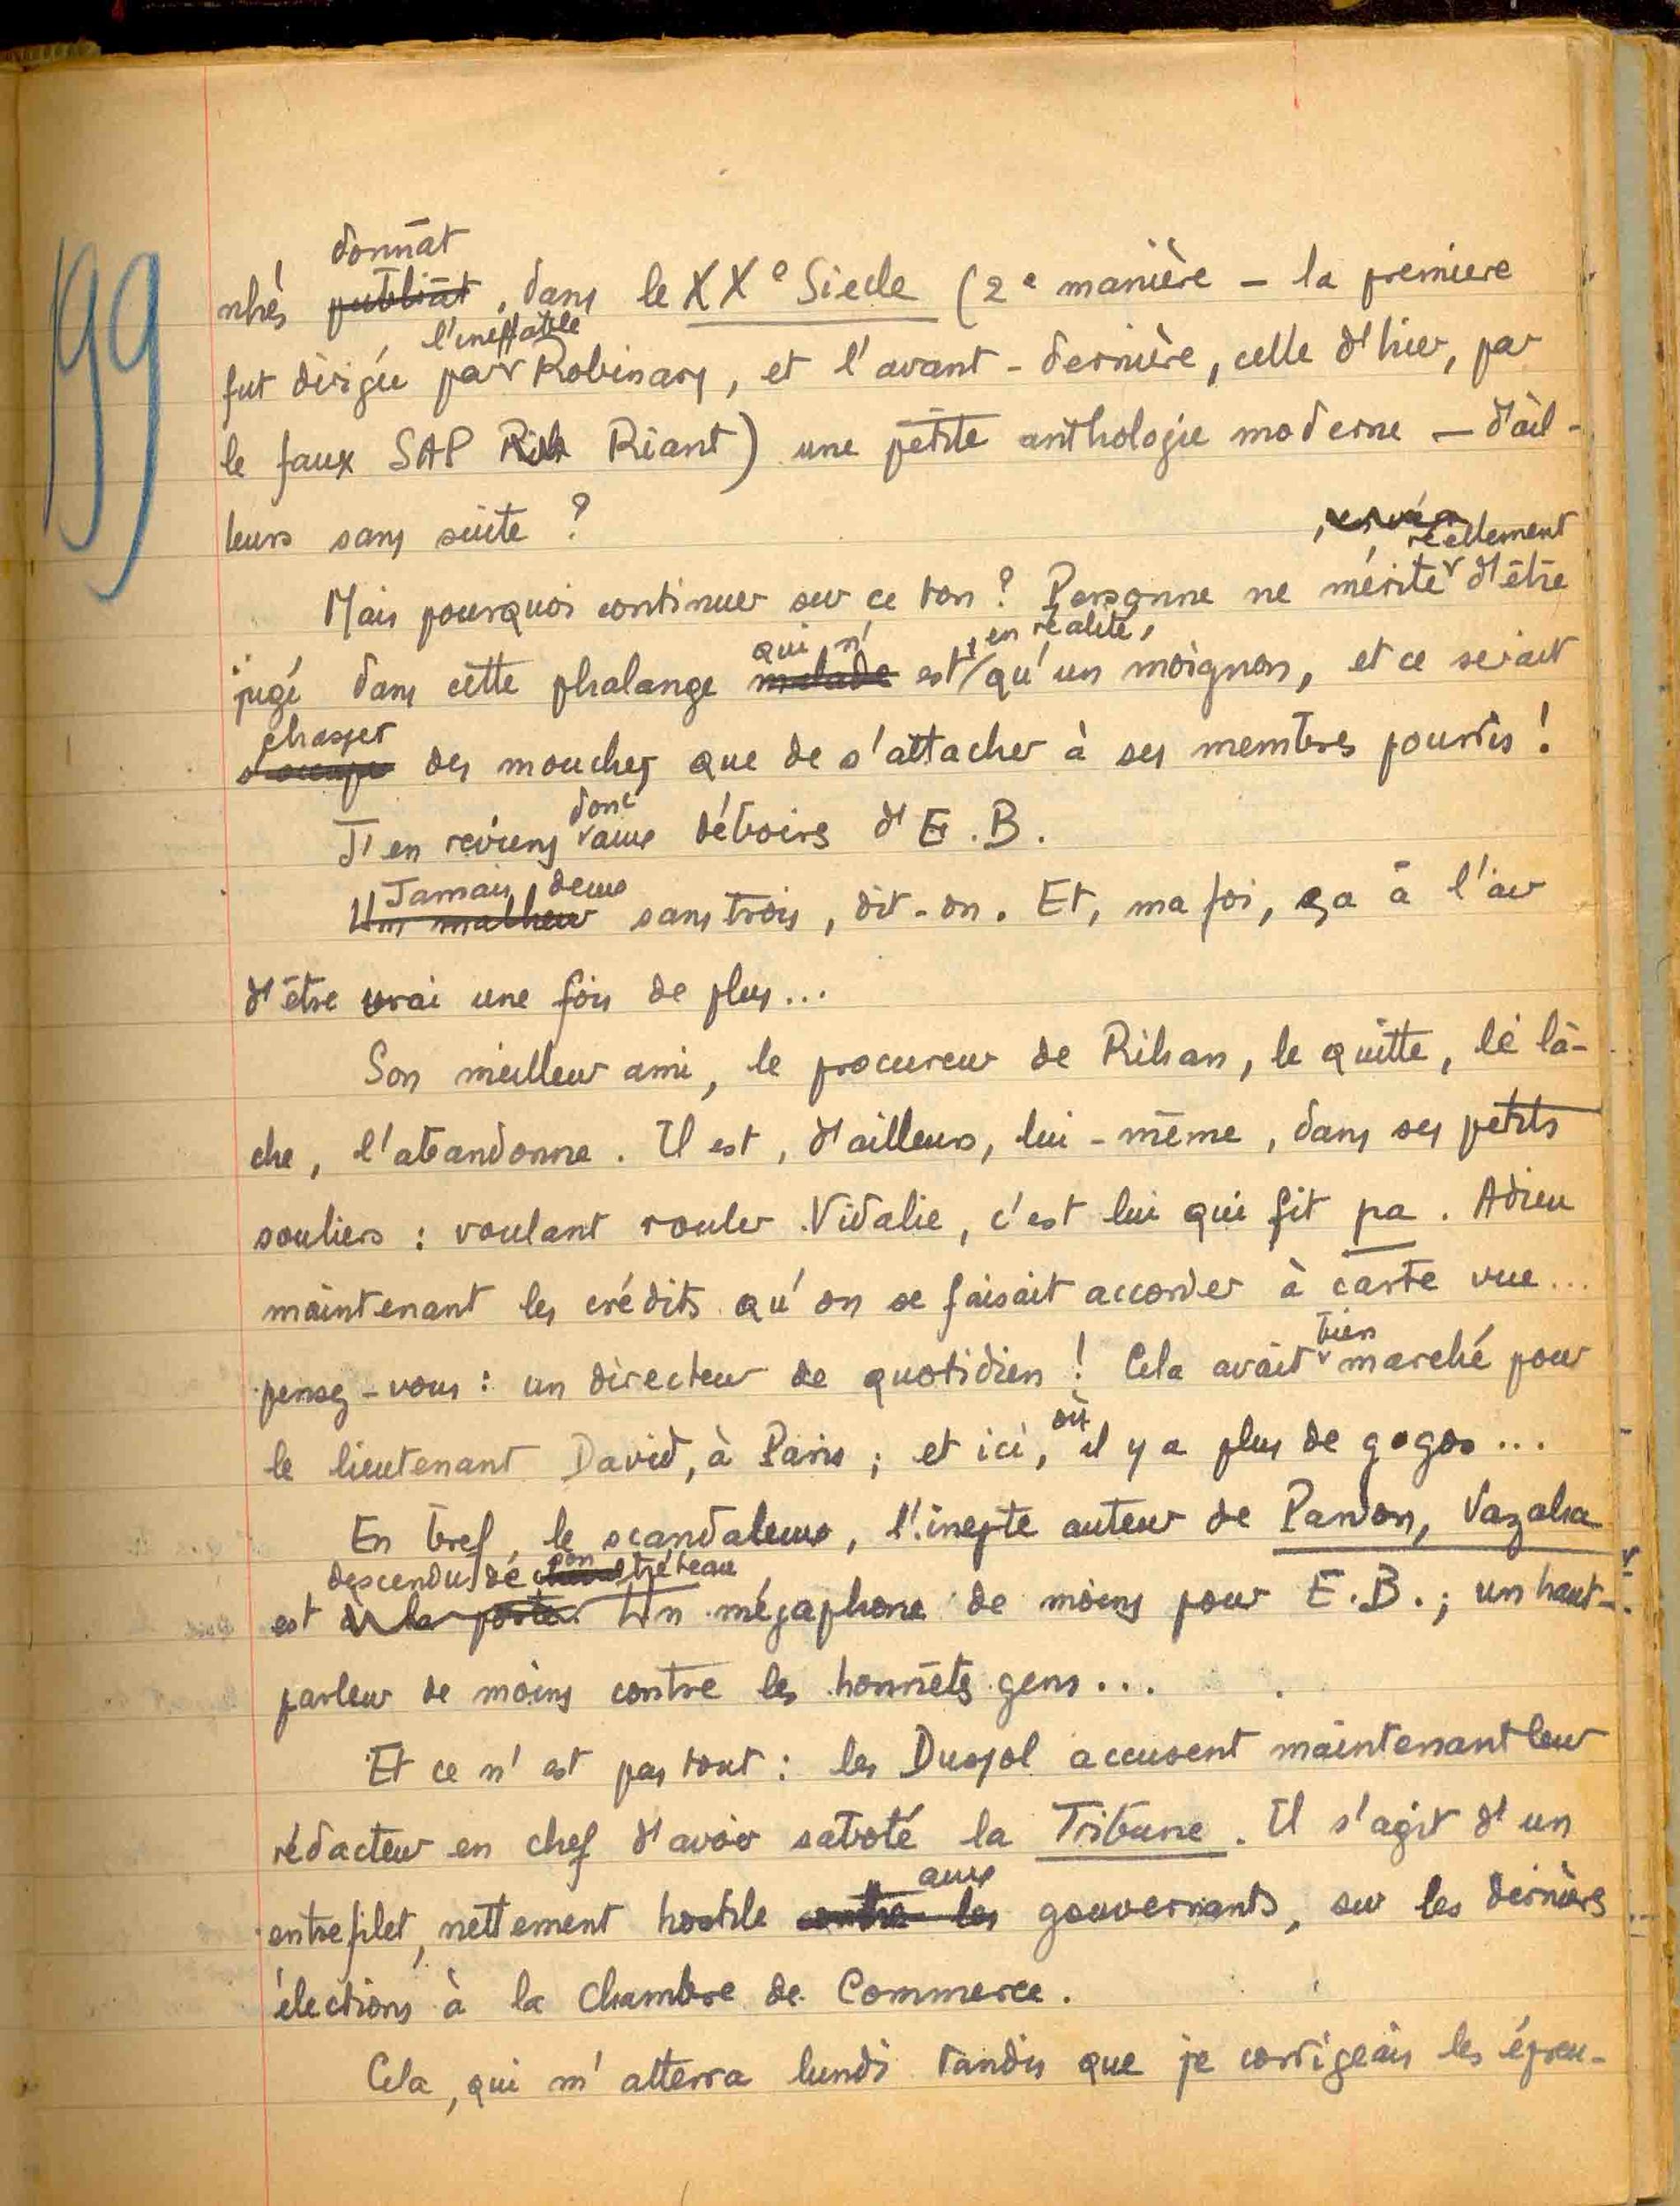 199
donnât
nhés publiât, dans le XXe Siecle (2e manière – la premiere
l'ineffable
fut dirigée par Robinary, et l'avant-dernière, celle d'hier, par
le faux SAP Riant) une petite anthologie moderne – d'ail-
leurs sans suite ?
réellement
Mais pourquoi continuer sur ce ton ? Personne ne mérite d'être
qui n' , en réalité,
jugé dans cette phalange malade est qu'un moignon, et ce serait
chasser
s'occuper des mouches que de s'attacher à ses membres pourris !
donc
J'en reviens aux déboires d'E.B.
Jamais deux
Un malheur sans trois, dit-on. Et, ma foi, ça à l'air
d'être vrai une fois de plus...
Son meilleur ami, le procureur de Rihan, le quitte, le lâ-
che, l'abandonne. Il est, d'ailleurs, lui-même, dans ses petits
souliers : voulant rouler Vidalie, c'est lui qui fit pa. Adieu
maintenant les crédits qu'on se faisait accorder à carte vue...
bien
pensez-vous : un directeur de quotidien ! Cela avait marché pour
où
le lieutenant David, à Paris ; et ici, il y a plus de gogos...
En bref, le scandaleux, l'inepte auteur de Pandon, Vazaha
descendu de son tréteau
est à la porte. Un mégaphone de moins pour E.B. ; un haut-
parleur de moins contre les honnêtes gens...
Et ce n'est pas tout : les Dussol accusent maintenant leur
rédacteur en chef d'avoir saboté la Tribune. Il s'agit d'un
aux
entrefilet, nettement hostile contre les gouvernants, sur les dernières
élections à la Chambre de Commerce.
Cela, qui m'atterra lundi tandis que je corrigeais les épreu-